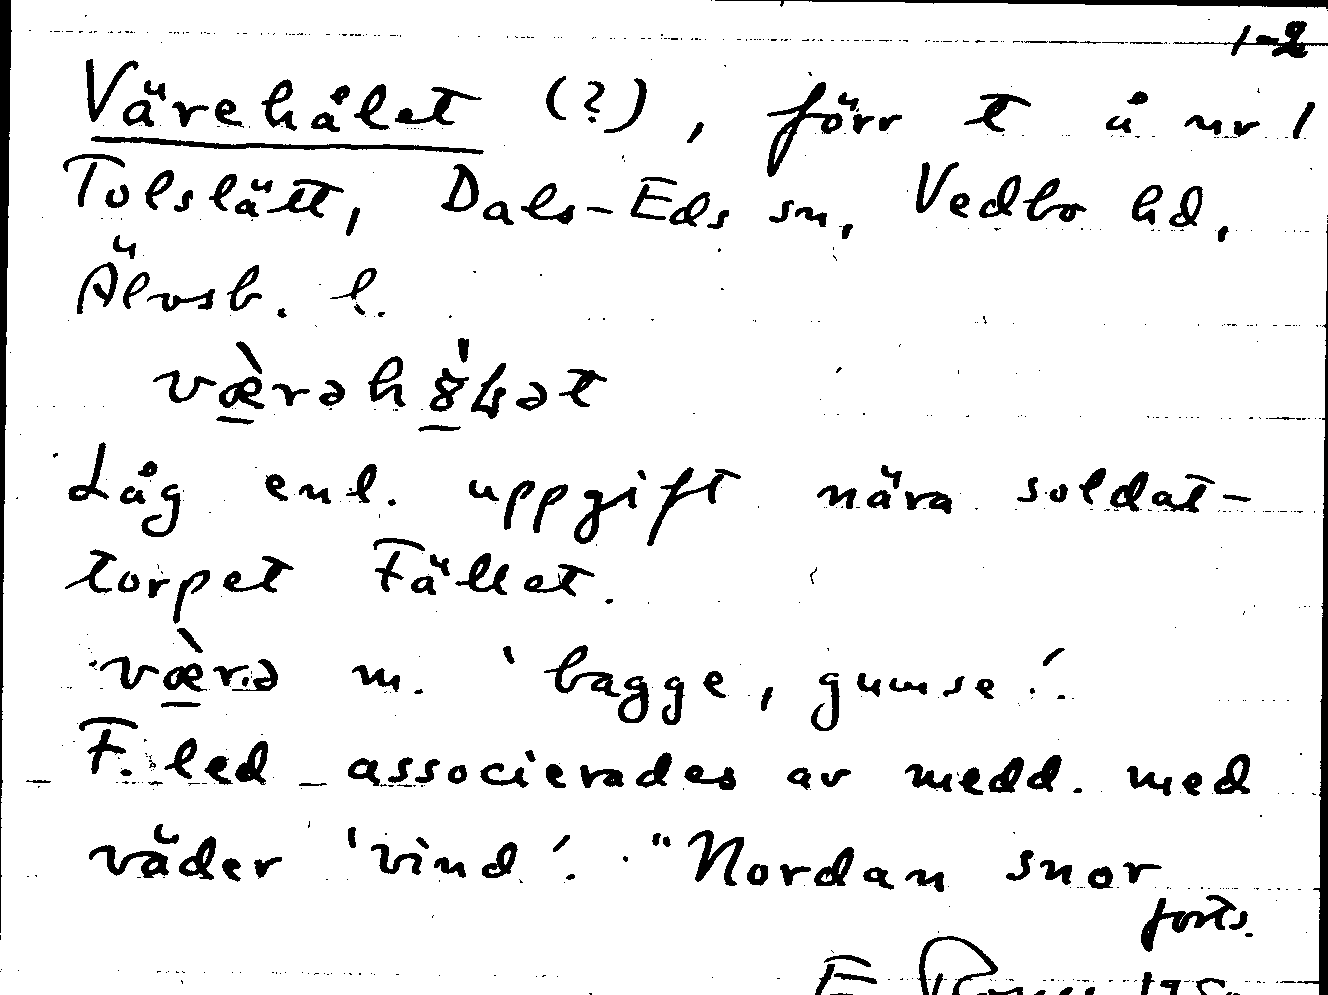 1-2
Värehålet (?), förr t å nr 1
Tolslätt, Dals-Eds sn, Vedbo hd,
Älvsb. l.
væ̀rəh8̍ɽət
Låg enl. uppgift nära soldat-
torpet Fället.
væ̀rə m. 'bagge, gumse'.
F. led associerades av medd. med
väder 'vind'. "Nordan snor
forts.